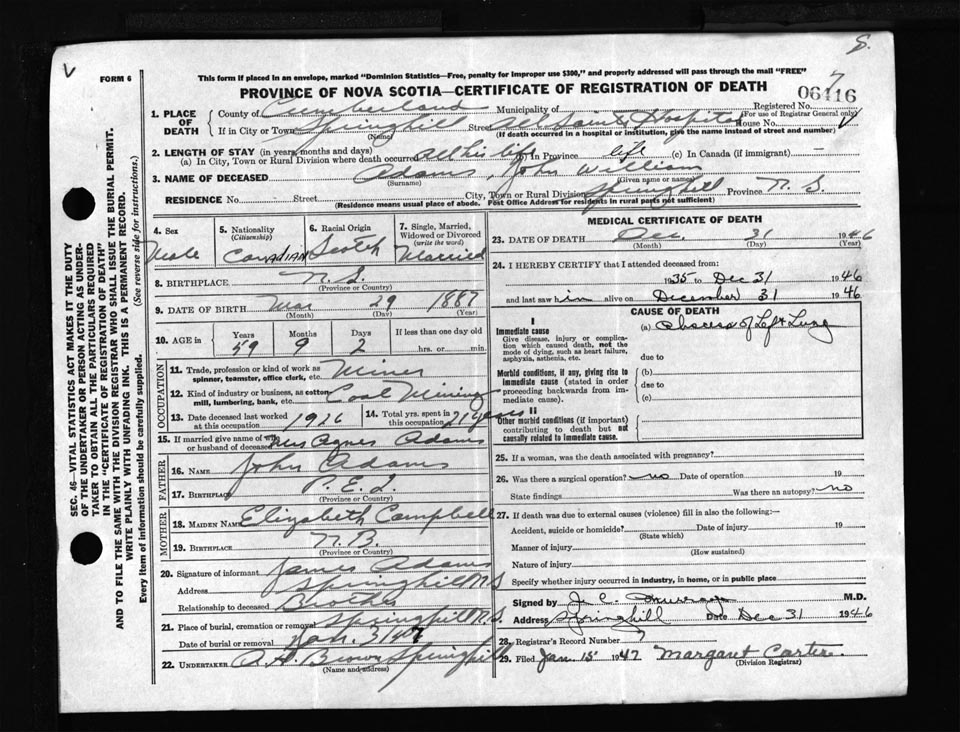 S.
V
FORM 6
This form if placed in an envelope, marked "Dominion Statistics—Free, penalty for improper use $300," and properly addressed will pass through the mail "FREE"
PROVINCE OF NOVA SCOTIA—CERTIFICATE OF REGISTRATION OF DEATH
7
06416
Registered No.
(For use of Registrar General only)
1. PLACE OF DEATH
County of Cumberland Municipality of
If in City or Town Springhill Street All Saints Hospital House No.
(Name) (If death occurred in a hospital or institution, give the name instead of street and number)
2. LENGTH OF STAY (in years, months and days)
(a) In City, Town or Rural Division where death occurred All his life (b) In Province life (c) In Canada (if immigrant) —
3. NAME OF DECEASED Adams, John William
(Surname) (Given name or names)
RESIDENCE No. Street City, Town or Rural Division Springhill Province N. S.
(Residence means usual place of abode. Post Office Address for residents in rural parts not sufficient)
4. Sex Male
5. Nationality (Citizenship) Canadian
6. Racial Origin Scotch
7. Single, Married, Widowed or Divorced (write the word) Married
8. BIRTHPLACE N. S.
(Province or Country)
9. DATE OF BIRTH Mar 29 1887
(Month) (Day) (Year)
10. AGE in Years Months Days If less than one day old
59 9 2 hrs. or min.
OCCUPATION
11. Trade, profession or kind of work as spinner, teamster, office clerk, etc. Miner
12. Kind of industry or business, as cotton mill, lumbering, bank, etc. Coal Mining
13. Date deceased last worked at this occupation 1926
14. Total yrs. spent in this occupation 21 years
15. If married give name of wife or husband of deceased Mrs Agnes Adams
FATHER
16. NAME John Adams
17. BIRTHPLACE P. E. I.
(Province or Country)
MOTHER
18. MAIDEN NAME Elizabeth Campbell
19. BIRTHPLACE N. B.
(Province or Country)
20. Signature of informant James Adams
Address Springhill N.S.
Relationship to deceased Brother
21. Place of burial, cremation or removal Springhill N.S.
Date of burial or removal Jan. 3/47
22. UNDERTAKER A. H. Brown Springhill
(Name and address)
MEDICAL CERTIFICATE OF DEATH
23. DATE OF DEATH Dec. 31 1946
(Month) (Day) (Year)
24. I HEREBY CERTIFY that I attended deceased from:
1935 to Dec 31 1946
and last saw him alive on December 31 1946
CAUSE OF DEATH
I
Immediate cause
Give disease, injury or complication which caused death, not the mode of dying, such as heart failure, asphyxia, asthenia, etc.
(a) Abscess of Left Lung
due to
Morbid conditions, if any, giving rise to immediate cause (stated in order proceeding backwards from immediate cause).
(b)
due to
(c)
II
Other morbid conditions (if important) contributing to death but not causally related to immediate cause.
25. If a woman, was the death associated with pregnancy?
26. Was there a surgical operation? no Date of operation 19
State findings Was there an autopsy? no
27. If death was due to external causes (violence) fill in also the following:—
Accident, suicide or homicide? Date of injury 19
(State which)
Manner of injury
(How sustained)
Nature of injury
Specify whether injury occurred in industry, in home, or in public place
Signed by J. C. M.D.
Address Springhill Date Dec 31 1946
28. Registrar's Record Number 7
29. Filed Jan. 15 1947 Margaret Carter.
(Division Registrar)
SEC. 46—VITAL STATISTICS ACT MAKES IT THE DUTY
OF THE UNDERTAKER OR PERSON ACTING AS UNDER-
TAKER TO OBTAIN ALL THE PARTICULARS REQUIRED
IN THE "CERTIFICATE OF REGISTRATION OF DEATH"
AND TO FILE THE SAME WITH THE DIVISION REGISTRAR WHO SHALL ISSUE THE BURIAL PERMIT.
WRITE PLAINLY WITH UNFADING INK. THIS IS A PERMANENT RECORD.
Every item of information should be carefully supplied. (See reverse side for instructions.)